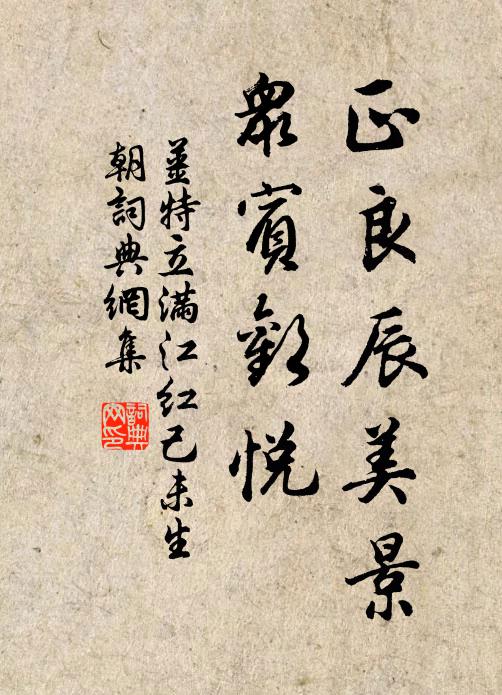 正良辰美景
眾賓歡悅
姜特立滿江紅己未生
朝詞典網集
詞典网印